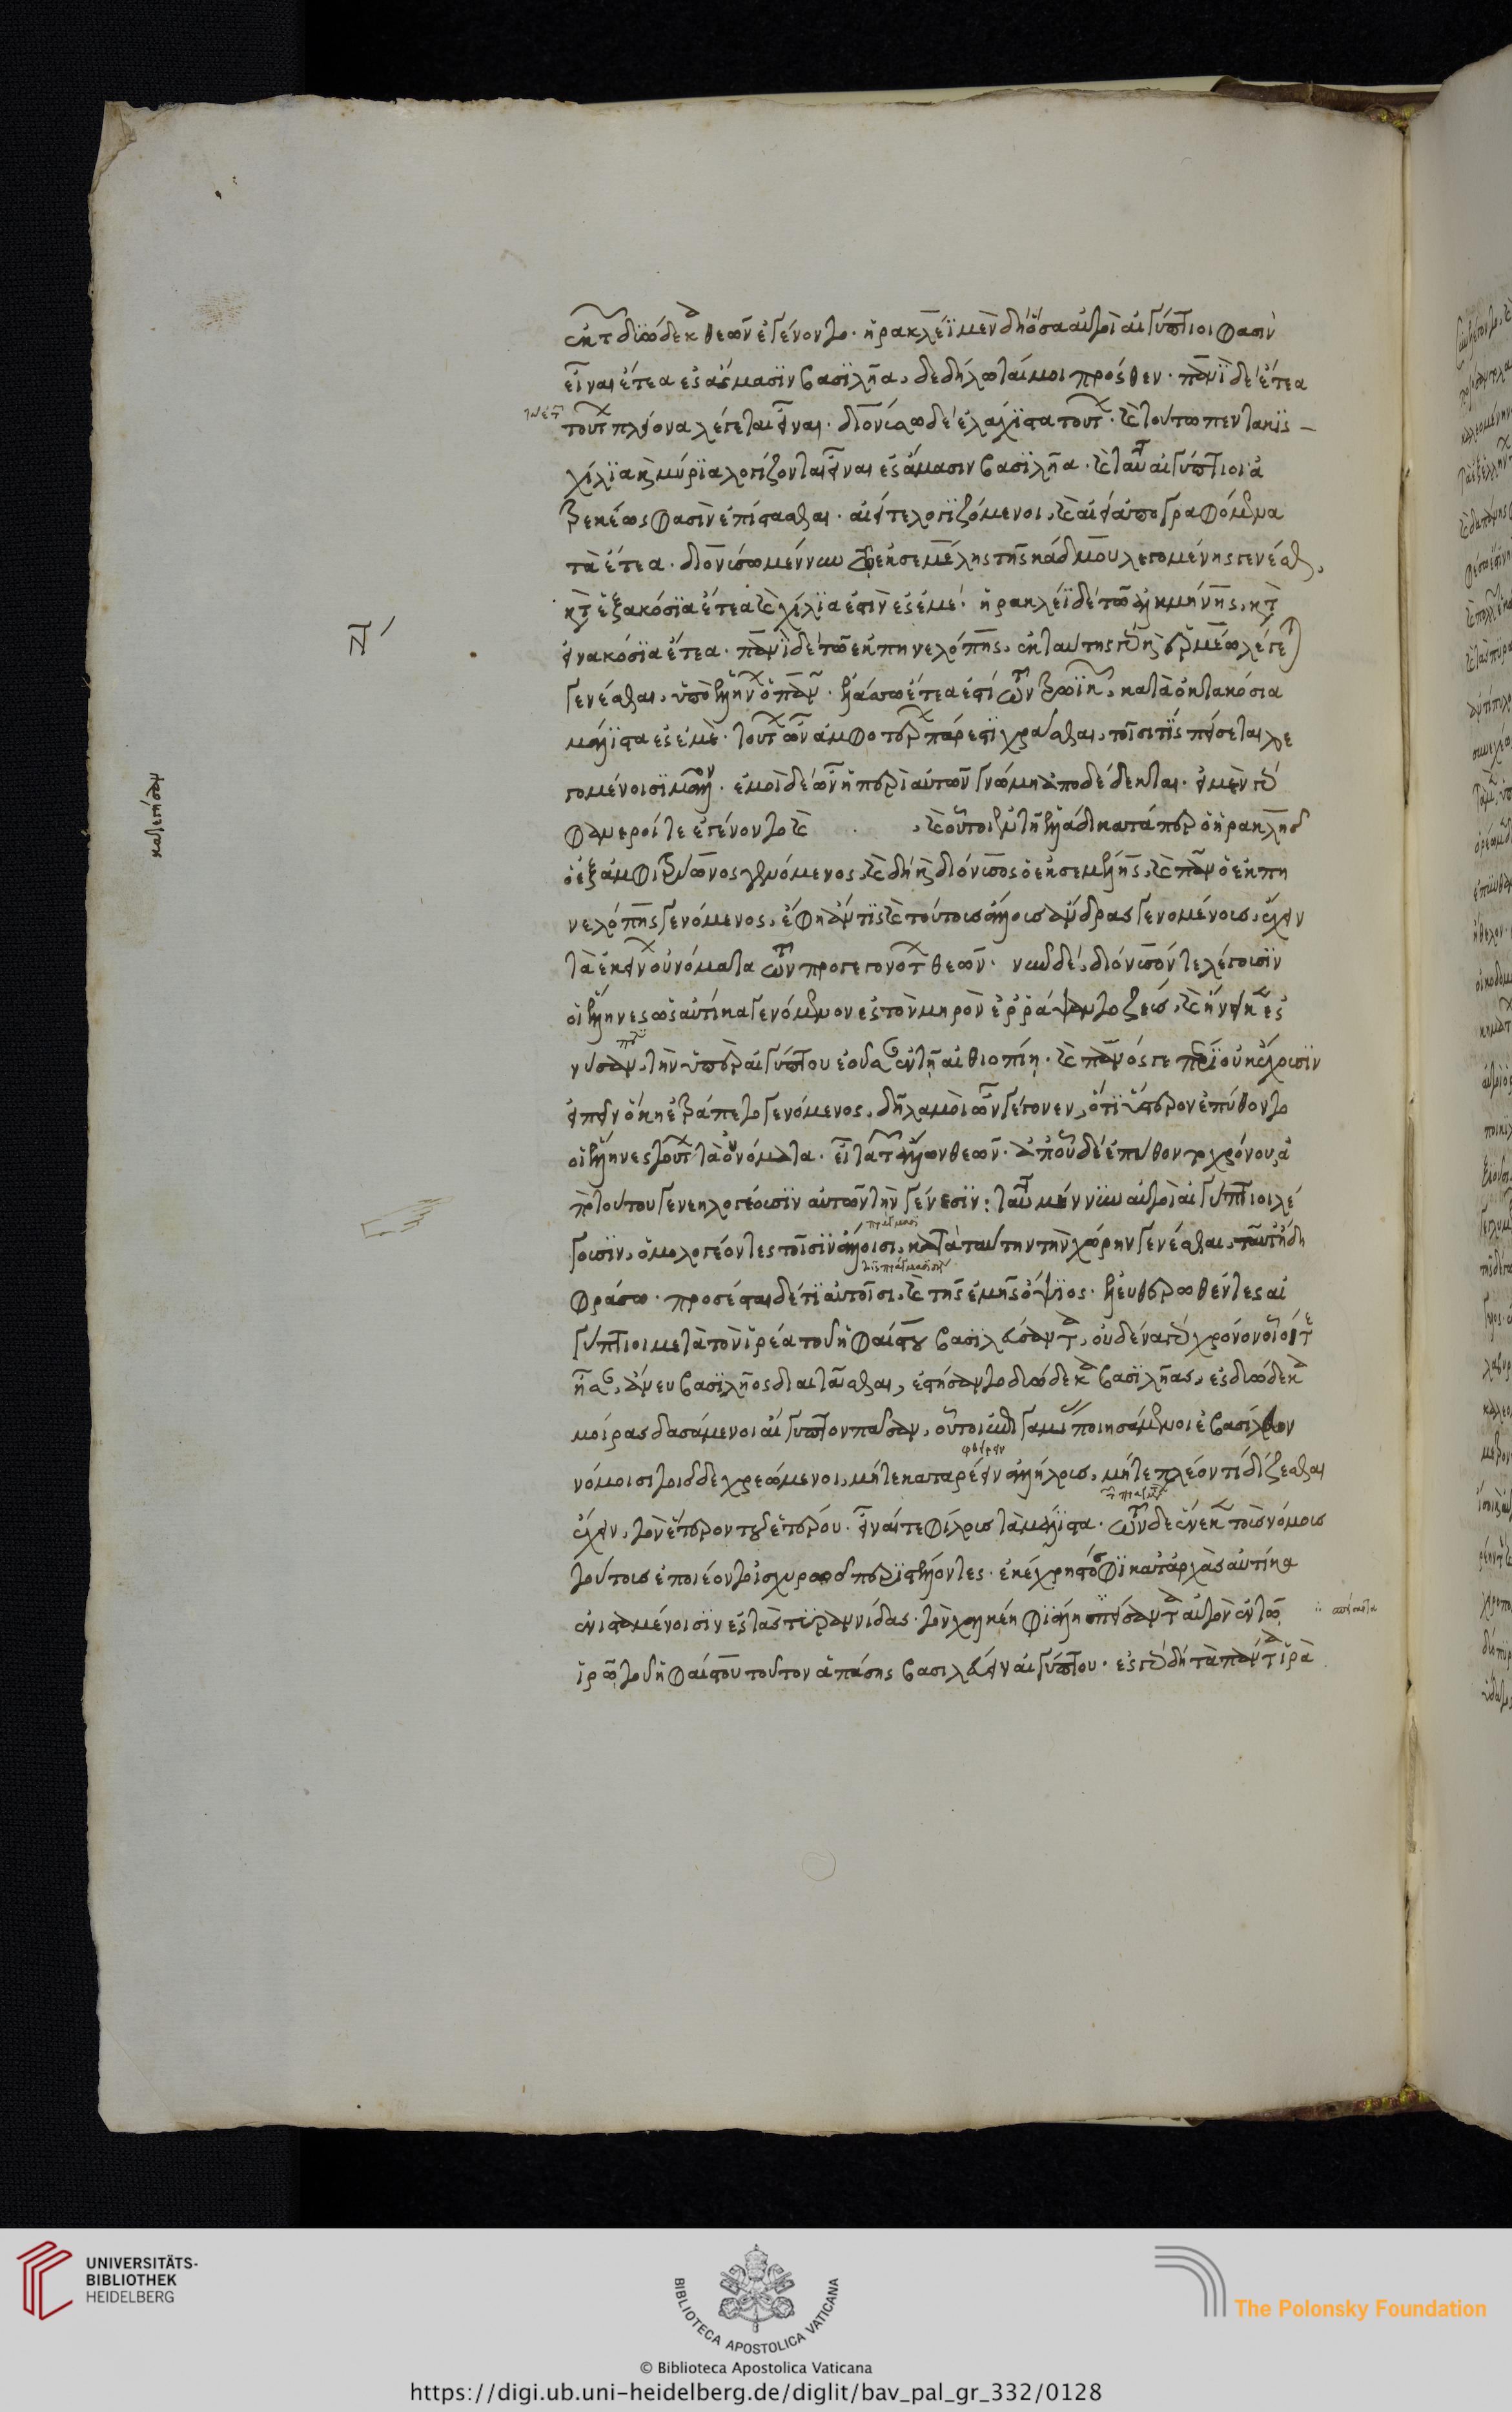 ἐκ τῶν δυώδεκα θεῶν ἐγένοντο· ἡρακλέϊ μὲν δὴ ὅσα αὐτοὶ αἰγύπτιοι φασὶν
εἶναι ἔτεα ἐς ἄμασϊν βασϊλῆα, δεδήλωταί μοι πρόσθεν· πανῒ δὲ ἔτεα
τουτέων πλείονα λέγεται εἶναι· διονύσω δὲ ἐλάχϊστα τουτέων· καὶ τούτω πεντακϊς
χίλϊα καὶ μύρϊα λογίζονται εἶναι ἐς ἄμασιν βασϊλῆα· καὶ ταῦτα αἰγύπτιοι ἀ
τρεκέως φασὶν ἐπίστασθαι· αἰεί τε λογϊζόμενοι, καὶ αἰεὶ ἀπογραφόμενα
τὰ ἔτεα· διονύσω μέν νυν τῶ ἐκ σεμέλης τῆς κάδμου λεγομένης γενέσθαι,
κατὰ ἑξακόσϊα ἔτεα καὶ χίλϊα ἐστὶν ἐς ἐμέ· ἡρακλέϊ δὲ τῶ ἀλκμήνης, κατὰ
εἰνακόσϊα ἔτεα· πανῒ δὲ τῶ ἐκ πηνελόπης, ἐκ ταύτης γὰρ καὶ ἑρμέω λέγεται
γενέσθαι, ὑπὸ ἑλλήνων ὁ πάν· ἐλάσσω ἔτεα ἐστί τῶν τρωϊκῶν, κατὰ ὀκτακόσια
μάλϊστα ἐς ἐμὲ· τουτέων ὧν ἀμφοτέρων πάρεστϊ χρᾶσθαι, τοῖσί τϊς πείσεται λε
γομένοισϊ μᾶλλον· ἐμοὶ δὲ ὧν ἡ περὶ αὐτῶν γνώμη ἀποδέδεκται· εἰ μὲν γὰρ
φανεροί τε ἐγένοντο καὶ , καὶ οὗτοι ἐν τῆ ἑλλάδι κατά περ ὁ ἡρακλῆς
ὁ ἐξ ἀμφιτρύωνος γενόμενος, καὶ δὴ καὶ διόνυσος ὁ ἐκ σεμέλης, καὶ πὰν ὁ ἐκ πη
νελόπης γενόμενος, ἔφη ἄν τϊς καὶ τούτοις ἄλλοις ἄνδρας γενομένοις, ἔχειν
τὰ ἐκείνων οὐνόματα τῶν προγεγονότων θεῶν· νῦν δὲ, διόνυσόν τε λέγοισϊν
οἱ ἕλληνες ὡς αὐτίκα γενόμενον ἐς τὸν μηρὸν ἐρράψατο ζεὺς, καὶ ἤνεικεν ἐς
νύσαν, τὴν ὑπὲρ αἰγύπτου ἐοῦσαν ἐν τῆ αἰθιοπίη· καὶ πανός γε πέρϊ οὐκ ἔχοισϊν
εἰπεῖν ὅκη ἐτράπετο γενόμενος, δῆλα μοὶ ὧν γέγονεν, ὅτϊ ὕστερον ἐπύθοντο
οἱ ἕλληνες τουτέων τὰ οὐνόματα· εἶ τὰ τῶν ἄλλων θεῶν· ἀπ οὗ δὲ ἐπύθοντο χρόνου, ἀ
πὸ τούτου γενεηλογέοισϊν αὐτῶν τὴν γένεσϊν: ταῦτα μέν νῦν αὐτοὶ αἰγύπτιοι λέ
γοισϊν, ὁμολογέοντες τοῖσϊν ἄλλοισι, κατὰ ταύτην τὴν χώρην γενέσθαι, ταῦτ ἤδη
φράσω· προσέσται δέ τϊ αὐτοῖσι, καὶ τῆς ἐμῆς ὄψϊος· ἐλευθερωθέντες αἰ
γύπτιοι μετὰ τὸν ἱρέα τοῦ ἡφαίστου βασϊλεύσαντα, οὐδένα γὰρ χρόνον οἷοί τε
ἦσαν, ἄνευ βασϊλῆος διαιτᾶσθαι, ἐστήσαντο δυώδεκα βασϊλῆας, ἐς δυώδεκα
μοίρας δασάμενοι αἴγυπτον πᾶσαν, οὗτοι ἐπιγαμίας ποιησάμενοι ἐβασίλευον
νόμοισι τοισίδε χρεώμενοι, μήτε καταιρέειν ἀλλήλοις, μήτε πλέον τί δίζεσθαι
ἔχειν, τὸν ἕτερον τοῦ ἑτέρου· εἶναί τε φίλοις τὰ μάλϊστα· τῶν δὲ εἵνεκα τοὶς νόμοις
τούτοις ἐποιέοντο ἰσχυρῶς περϊστέλλοντες· ἐκέχρηστό σφϊ κατ ἀρχὰς αὐτίκα
ἐνισταμένοισϊν ἐς τὰς τϋραννίδας· τὸν χαλκέη φϊάλη σπείσαντα αὐτὸν ἐν τῶ
ἱρῶ τοῦ ἡφαίστου τοῦτον ἁπάσης βασιλεύειν αἰγύπτου· ἐς γὰρ δὴ τὰ πάντα ἱρὰ
UNIVERSITÄTS-
BIBLIOTHEK
HEIDELBERG
BIBLIOTECA APOSTOLICA VATICANA
The Polonsky Foundation
© Biblioteca Apostolica Vaticana
https://digi.ub.uni-heidelberg.de/diglit/bav_pal_gr_332/0128